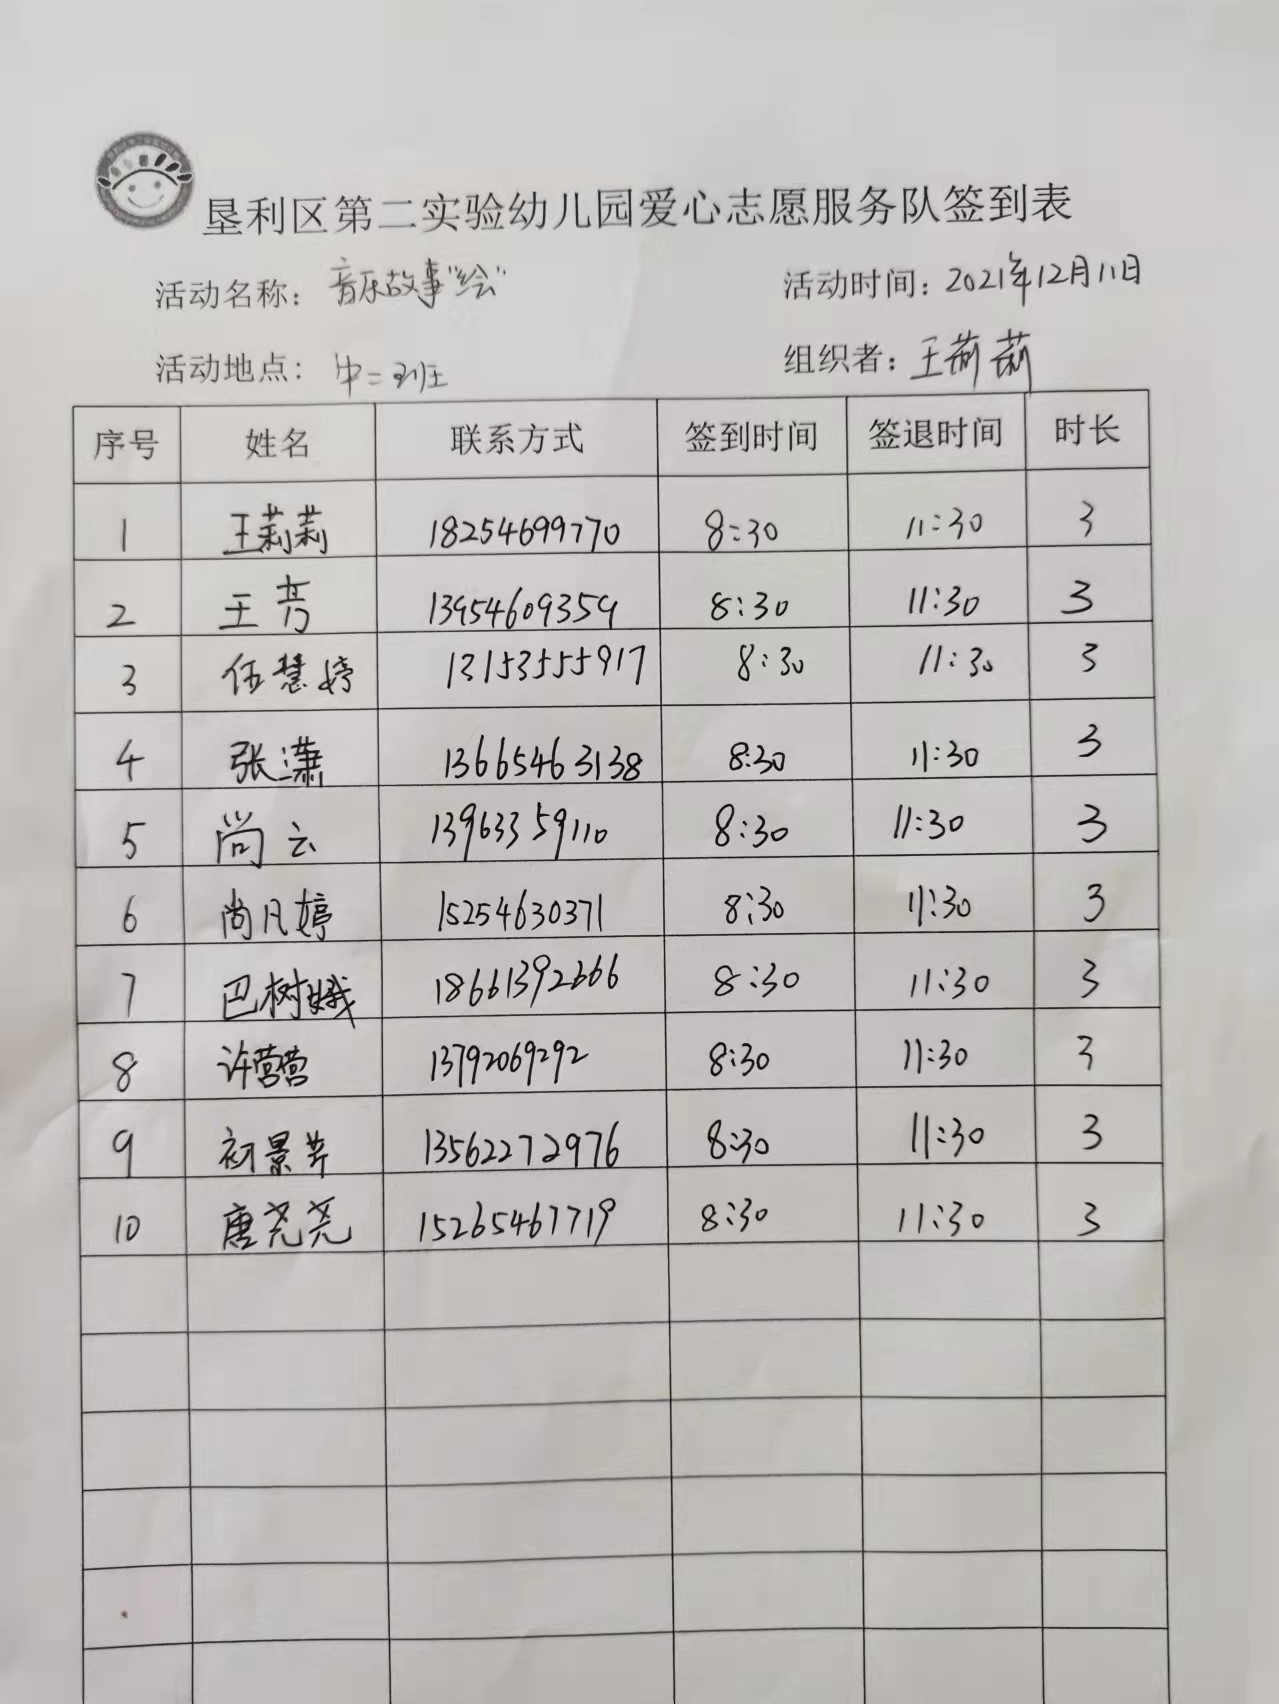 垦利区第二实验幼儿园爱心志愿服务队签到表
活动名称：音乐故事"绘" 活动时间：2021年12月11日
活动地点：中二班 组织者：王莉莉
序号 姓名 联系方式 签到时间 签退时间 时长
1 王莉莉 18254699770 8:30 11:30 3
2 王芳 13954609359 8:30 11:30 3
3 伍慧婷 13153555917 8:30 11:30 3
4 张潇 13665463138 8:30 11:30 3
5 尚云 13963359110 8:30 11:30 3
6 尚凡婷 15254630371 8:30 11:30 3
7 巴树娥 18661392666 8:30 11:30 3
8 许营营 13792069292 8:30 11:30 3
9 初景芹 13562272976 8:30 11:30 3
10 唐尧尧 15265467719 8:30 11:30 3